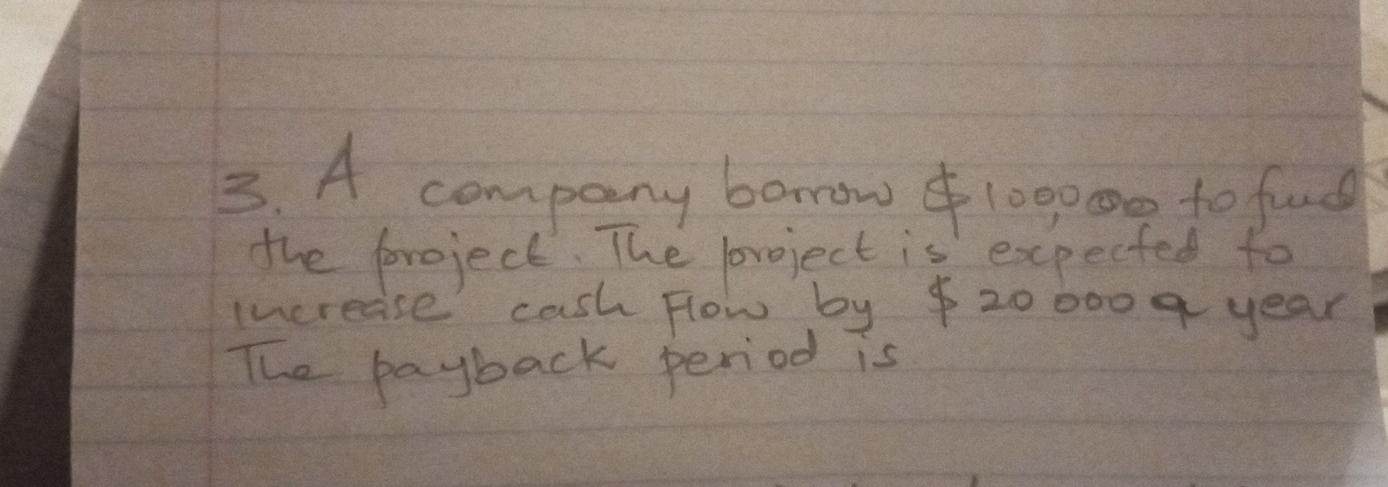 3. A company borrow $100,000 to fund
the project. The project is expected to
increase cash Flow by $20 000 a year
The payback period is